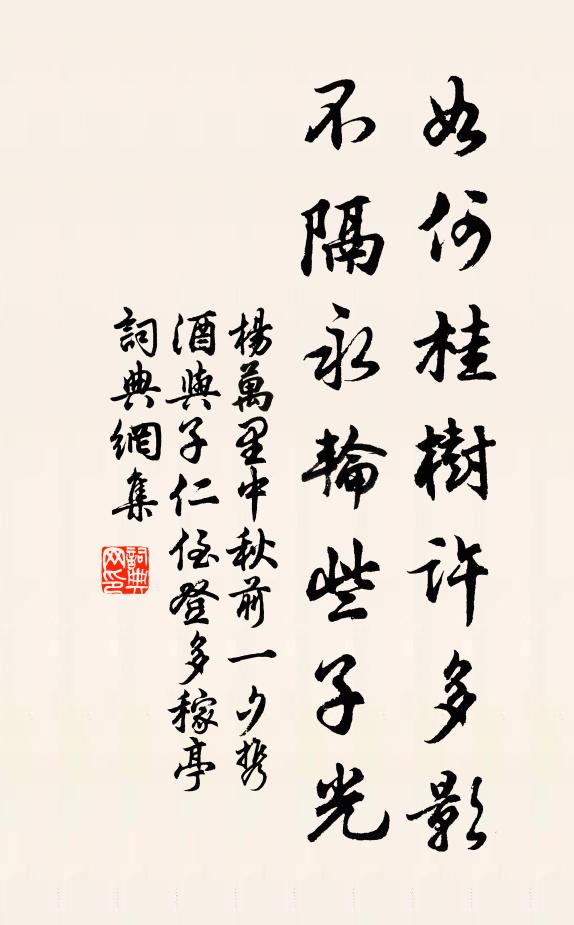 如何桂樹許多影
不隔永輪些子光
楊萬里中秋前一夕携
酒與子仁侄登多稼亭
詞典網集
詞典网印